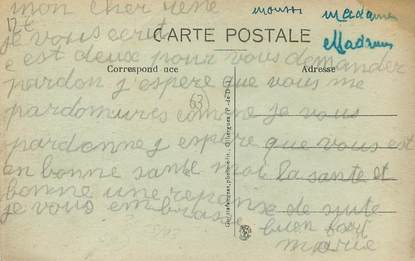 mon cher rené
17 c
moussi madame
Madame
je vous ecrit
CARTE POSTALE
c est deux pour vous demander
Correspondance
Adresse
pardon j'espere que vous me
63
pardonnures comme je vous
pardonne j espere que vous est
en bonne santé moi la santé et
bonne une reponse de suite
je vous embrasse bien fort
marie